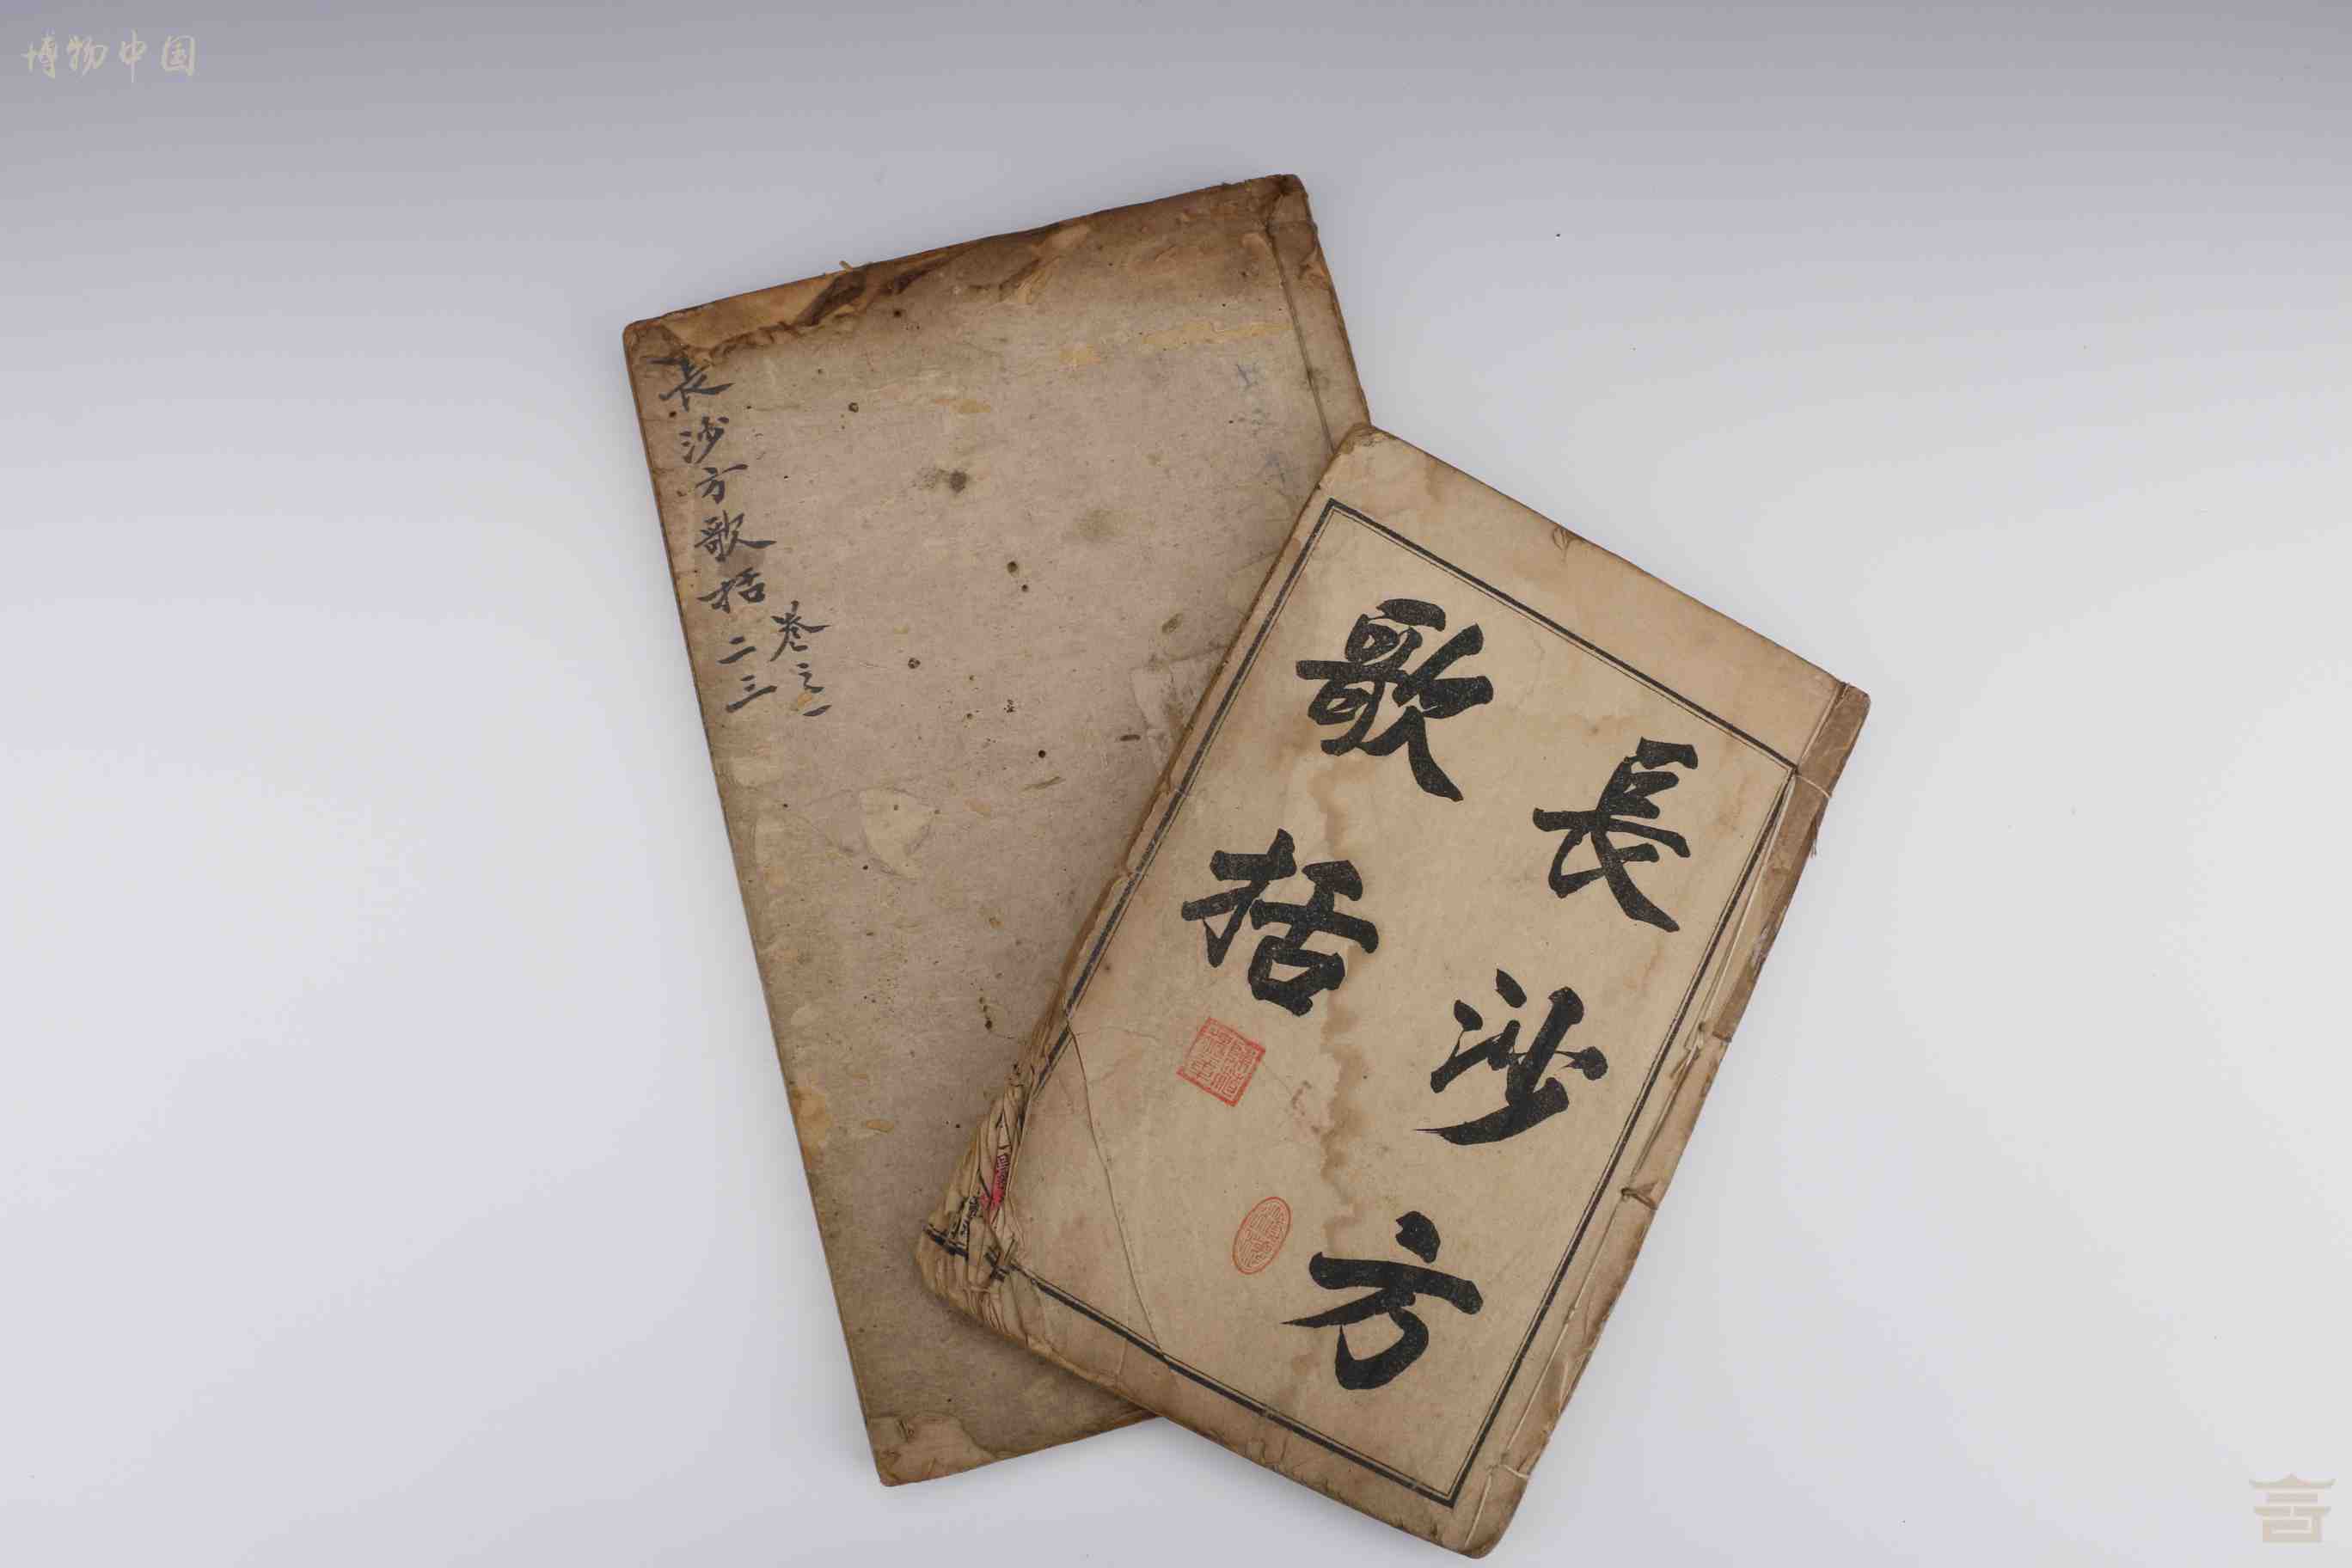 博物中国
長沙方歌括二三
卷之一
長沙方
歌括